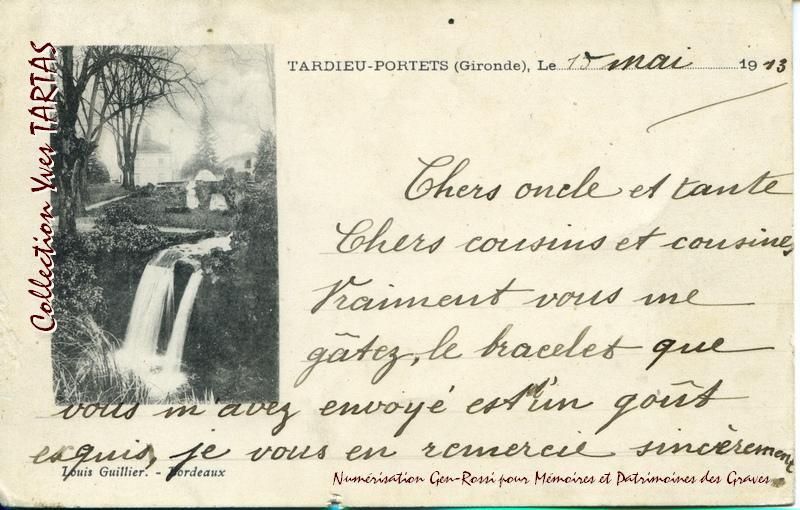 TARDIEU-PORTETS (Gironde), Le 15 mai 1913
Chers oncle et tante
Chers cousins et cousines
Vraiment vous me
gâtez, le bracelet que
vous m'avez envoyé est d'un goût
exquis, je vous en remercie sincèrement
Louis Guillier. - Bordeaux
Numérisation Gen-Rossi pour Mémoires et Patrimoines des Graves
Collection Yves TARTAS